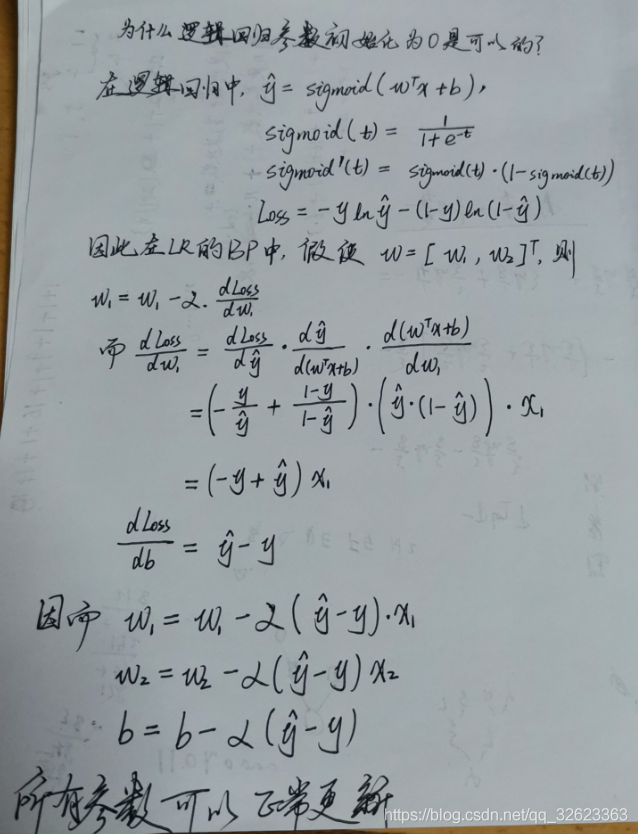 为什么逻辑回归参数初始化为0是可以的?
在逻辑回归中, ŷ = sigmoid(wᵀx+b),
sigmoid(t) = 1/(1+e^(-t))
sigmoid'(t) = sigmoid(t)·(1-sigmoid(t))
Loss = -y ln ŷ - (1-y) ln(1-ŷ)
因此在LR的BP中, 假使 w = [w₁, w₂]ᵀ, 则
w₁ = w₁ - α. dLoss/dw₁
而 dLoss/dw₁ = dLoss/dŷ · dŷ/d(wᵀx+b) · d(wᵀx+b)/dw₁
= (-y/ŷ + (1-y)/(1-ŷ)) · (ŷ·(1-ŷ)) · x₁
= (-y+ŷ) x₁
dLoss/db = ŷ - y
因而 w₁ = w₁ - α(ŷ-y)·x₁
w₂ = w₂ - α(ŷ-y) x₂
b = b - α(ŷ-y)
所有参数可以正常更新
https://blog.csdn.net/qq_32623363